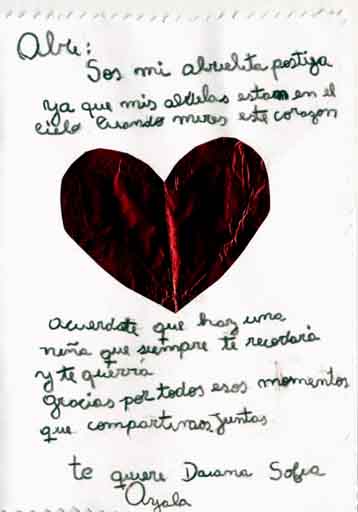 Abu:
Sos mi abuelita postiza
ya que mis abuelas estan en el
cielo cuando mires este corazon
acuerdate que hay una
niña que siempre te recordará
y te querrá
gracias por todos esos momentos
que compartimos juntas
te quiere Daiana Sofia
Ayala